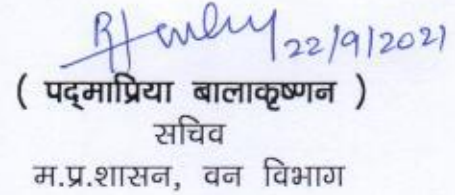 22/9/2021
( पद्माप्रिया बालाकृष्णन )
सचिव
म.प्र.शासन, वन विभाग